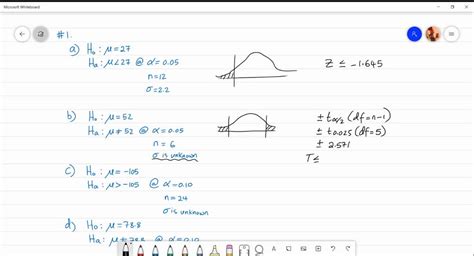 Microsoft Whiteboard
#1.
a) H₀ : μ = 27
Ha : μ < 27 @ α = 0.05
n = 12
σ = 2.2
Z ≤ -1.645
b) H₀ : μ = 52
Ha : μ ≠ 52 @ α = 0.05
n = 6
σ is unknown
± tα/2 (df = n-1)
± t0.025 (df = 5)
± 2.571
T ≤
c) H₀ : μ = -105
Ha : μ > -105 @ α = 0.10
n = 24
σ is unknown
d) H₀ : μ = 78.8
Ha : μ ≠ 78.8 @ α = 0.10